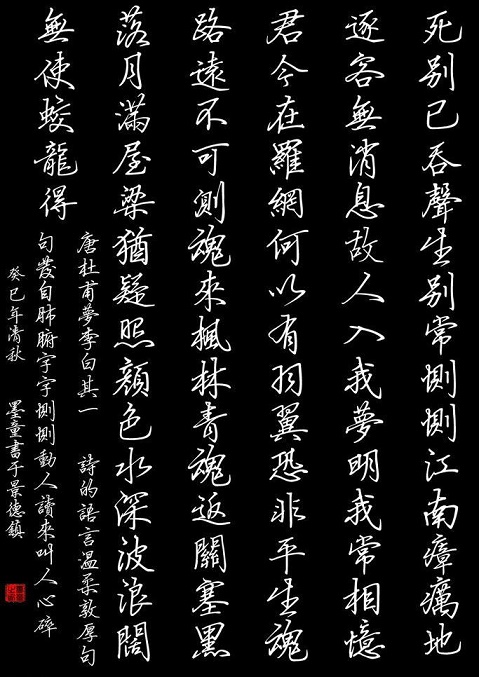 死别已吞聲生别常惻惻江南瘴癘地
逐客無消息故人入我夢明我常相憶
君今在羅網何以有羽翼恐非平生魂
路遠不可測魂來楓林青魂返關塞黑
落月滿屋梁猶疑照顏色水深波浪闊
無使蛟龍得
唐杜甫夢李白其一 詩的語言温柔敦厚句
句發自肺腑字字惻惻動人讀來叫人心碎
癸巳年清秋 墨童書于景德鎮